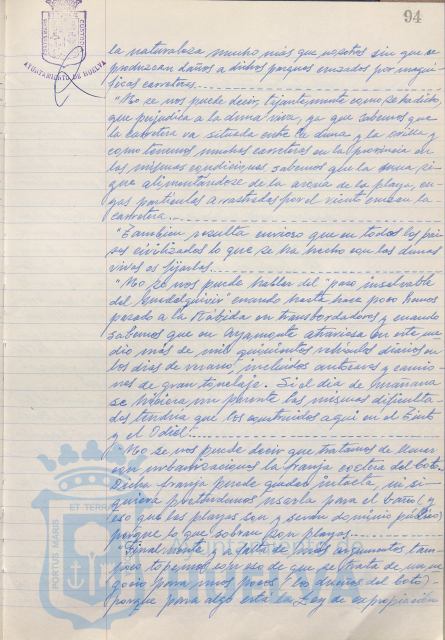 94
AYUNTAMIENTO DE HUELVA
la naturaleza mucho más que nosotros sin que se
produzcan daños a dichos parques cruzados por magní-
ficas carreteras.
"No se nos puede decir, tijantemente como se ha dicho
que perjudica a la duna viva, ya que sabemos que
la carretera va situada entre la duna y la orilla y
como tenemos muchas carreteras en la provincia en
las mismas condiciones sabemos que la duna si-
gue alimentandose de la arena de la playa, cu-
yas partículas arrastradas por el viento cruzan la
carretera.
"Tambien resulta curioso que en todos los paí-
ses civilizados lo que se ha hecho con las dunas
vivas es fijarlas.
"No se nos puede hablar del "paso insalvable
del Guadalquivir" cuando hasta hace poco hemos
pasado a la Rábida en transbordadores y cuando
sabemos que en Ayamonte atraviesa en este me-
dio más de mil quinientos vehículos diarios en
los dias de verano, incluidos autocares y camio-
nes de gran tonelaje. Si el dia de mañana
se hiciera un puente las mismas dificulta-
des tendria que los construidos aqui en el Tinto
y el Odiel.
"No se nos puede decir que tratamos de llenar
con urbanizaciones la franja costera del Coto.
Dicha franja puede quedar intacta, ni si-
quiera pretendemos usarla para el baño (y
eso que las playas son y serán dominio público)
porque lo que sobran son playas.
"Finalmente, a falta de más argumentos tam-
poco topemos con eso de que se trata de un ne-
gocio para unos pocos (los dueños del Coto)
porque para algo está la Ley de expropiación
PORTUS MARIS
ET TERRAE